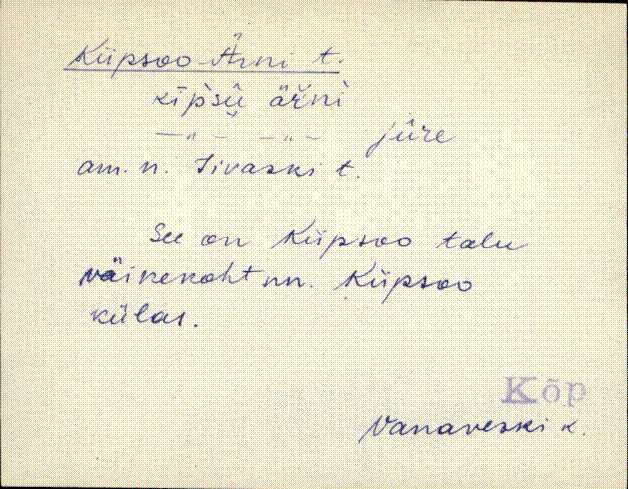 Kiipsoo-Ärni t.
kīpsū̬ äřnì
—„— —„— jūre
am. n. Iivaski t.
See on Kiipsoo talu
väikekoht nn. Kiipsoo
külas.
Kõp
Vanaveski k.